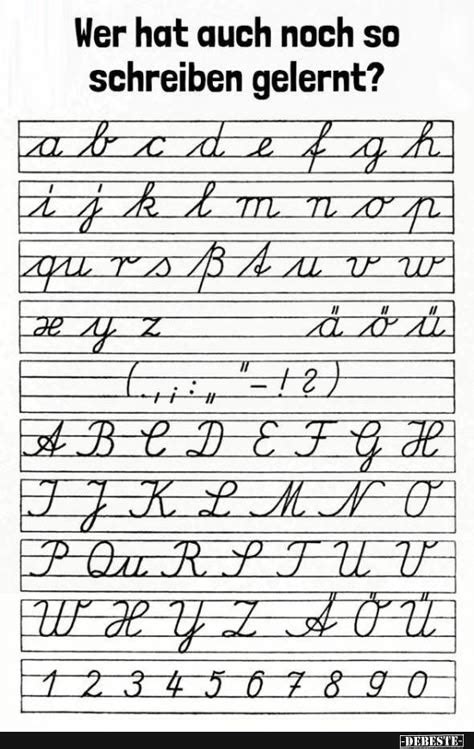 Wer hat auch noch so
schreiben gelernt?
a b c d e f g h
i j k l m n o p
qu r s ß t u v w
x y z ä ö ü
( . , ; : „ " – ! ? )
A B C D E F G H
I J K L M N O
P Qu R S T U V
W X Y Z Ä Ö Ü
1 2 3 4 5 6 7 8 9 0
-DEBESTE-